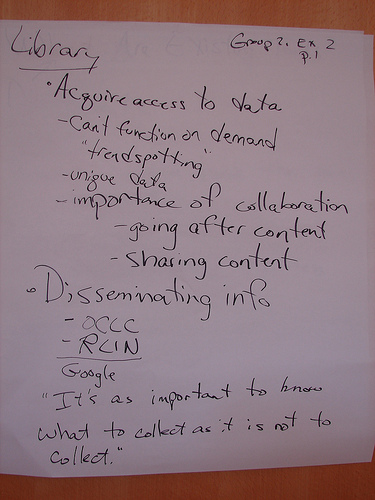 Library
Group 2, Ex 2
p.1
• Acquire access to data
- Can't function on demand
"trendspotting"
- unique data
- importance of collaboration
- going after content
- sharing content
• Disseminating info
- OCLC
- RLIN
Google
"It's as important to know
what to collect as it is not to
collect."